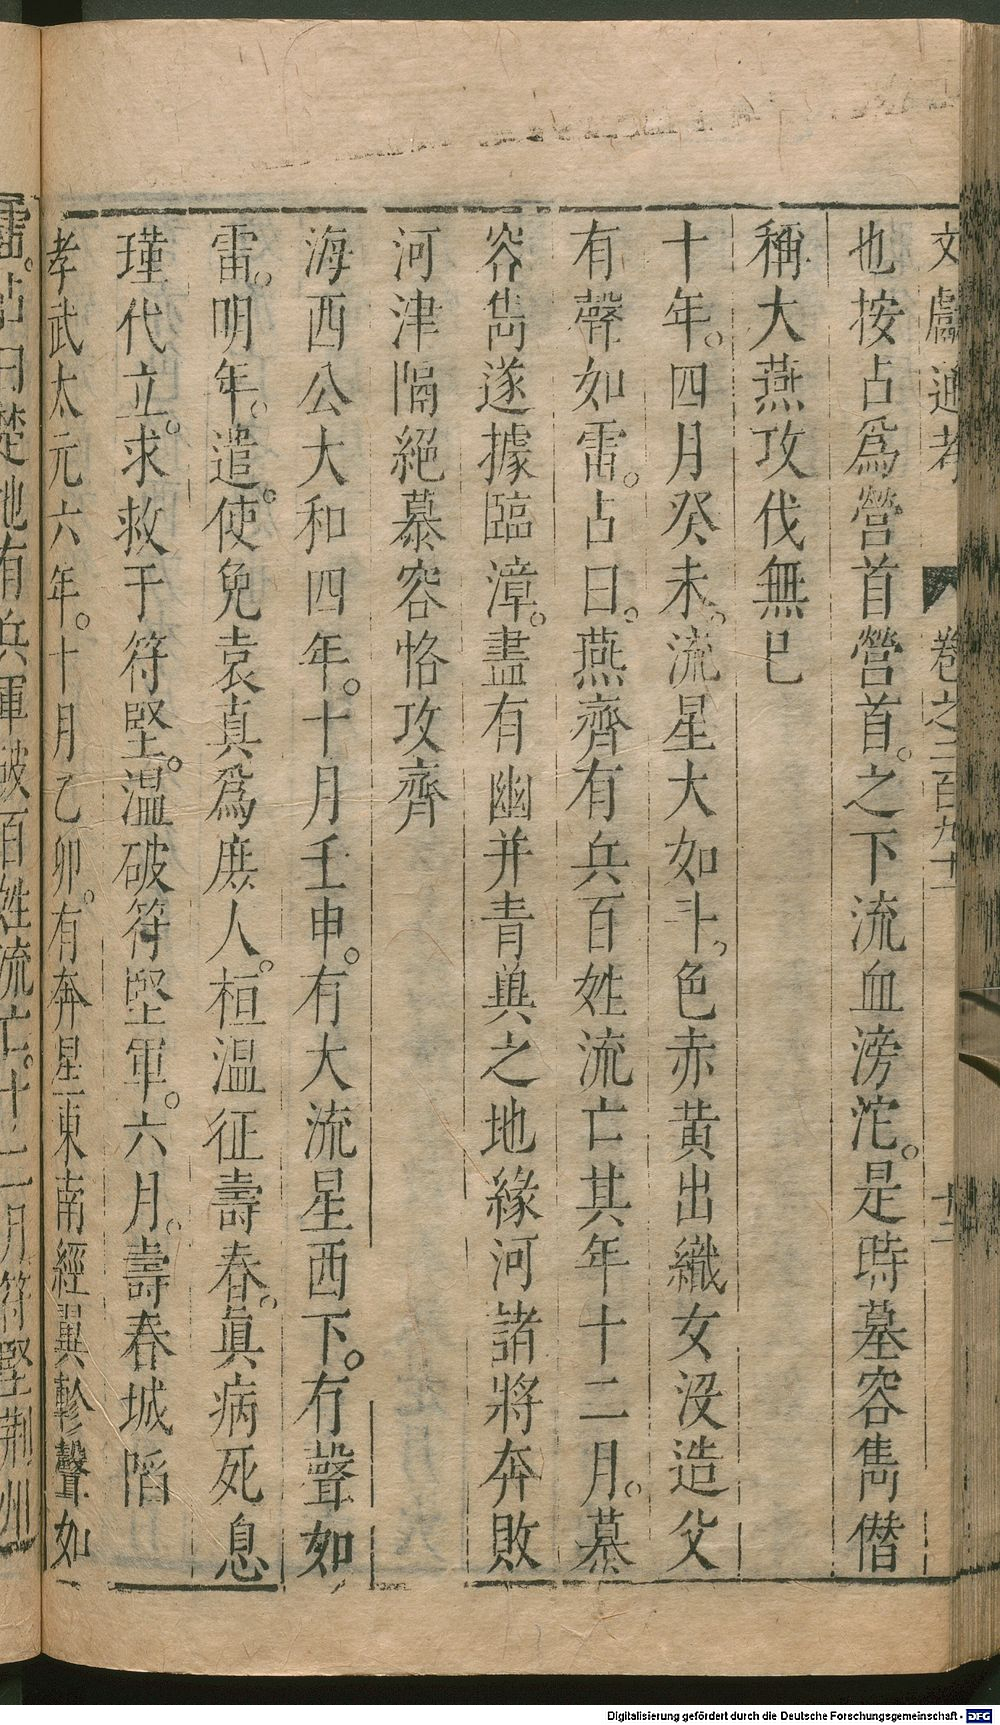 文獻通考 卷之二百九十一 十二
也按占爲營首營首之下流血滂沱是時墓容雋僭
稱大燕攻伐無已
十年四月癸未流星大如斗色赤黄出織女没造父
有聲如雷占曰燕齊有兵百姓流亡其年十二月慕
容雋遂據臨漳盡有幽并青兾之地緣河諸將奔敗
河津隔絕慕容恪攻齊
海西公大和四年十月壬申有大流星西下有聲如
雷明年遣使免袁真爲庶人桓温征壽春真病死息
瑾代立求救于符堅温破符堅軍六月壽春城陷
孝武太元六年十月乙卯有奔星東南經翼軫聲如
雷占曰楚地有兵軍破百姓流亡十二月符堅荆州
Digitalisierung gefördert durch die Deutsche Forschungsgemeinschaft - DFG